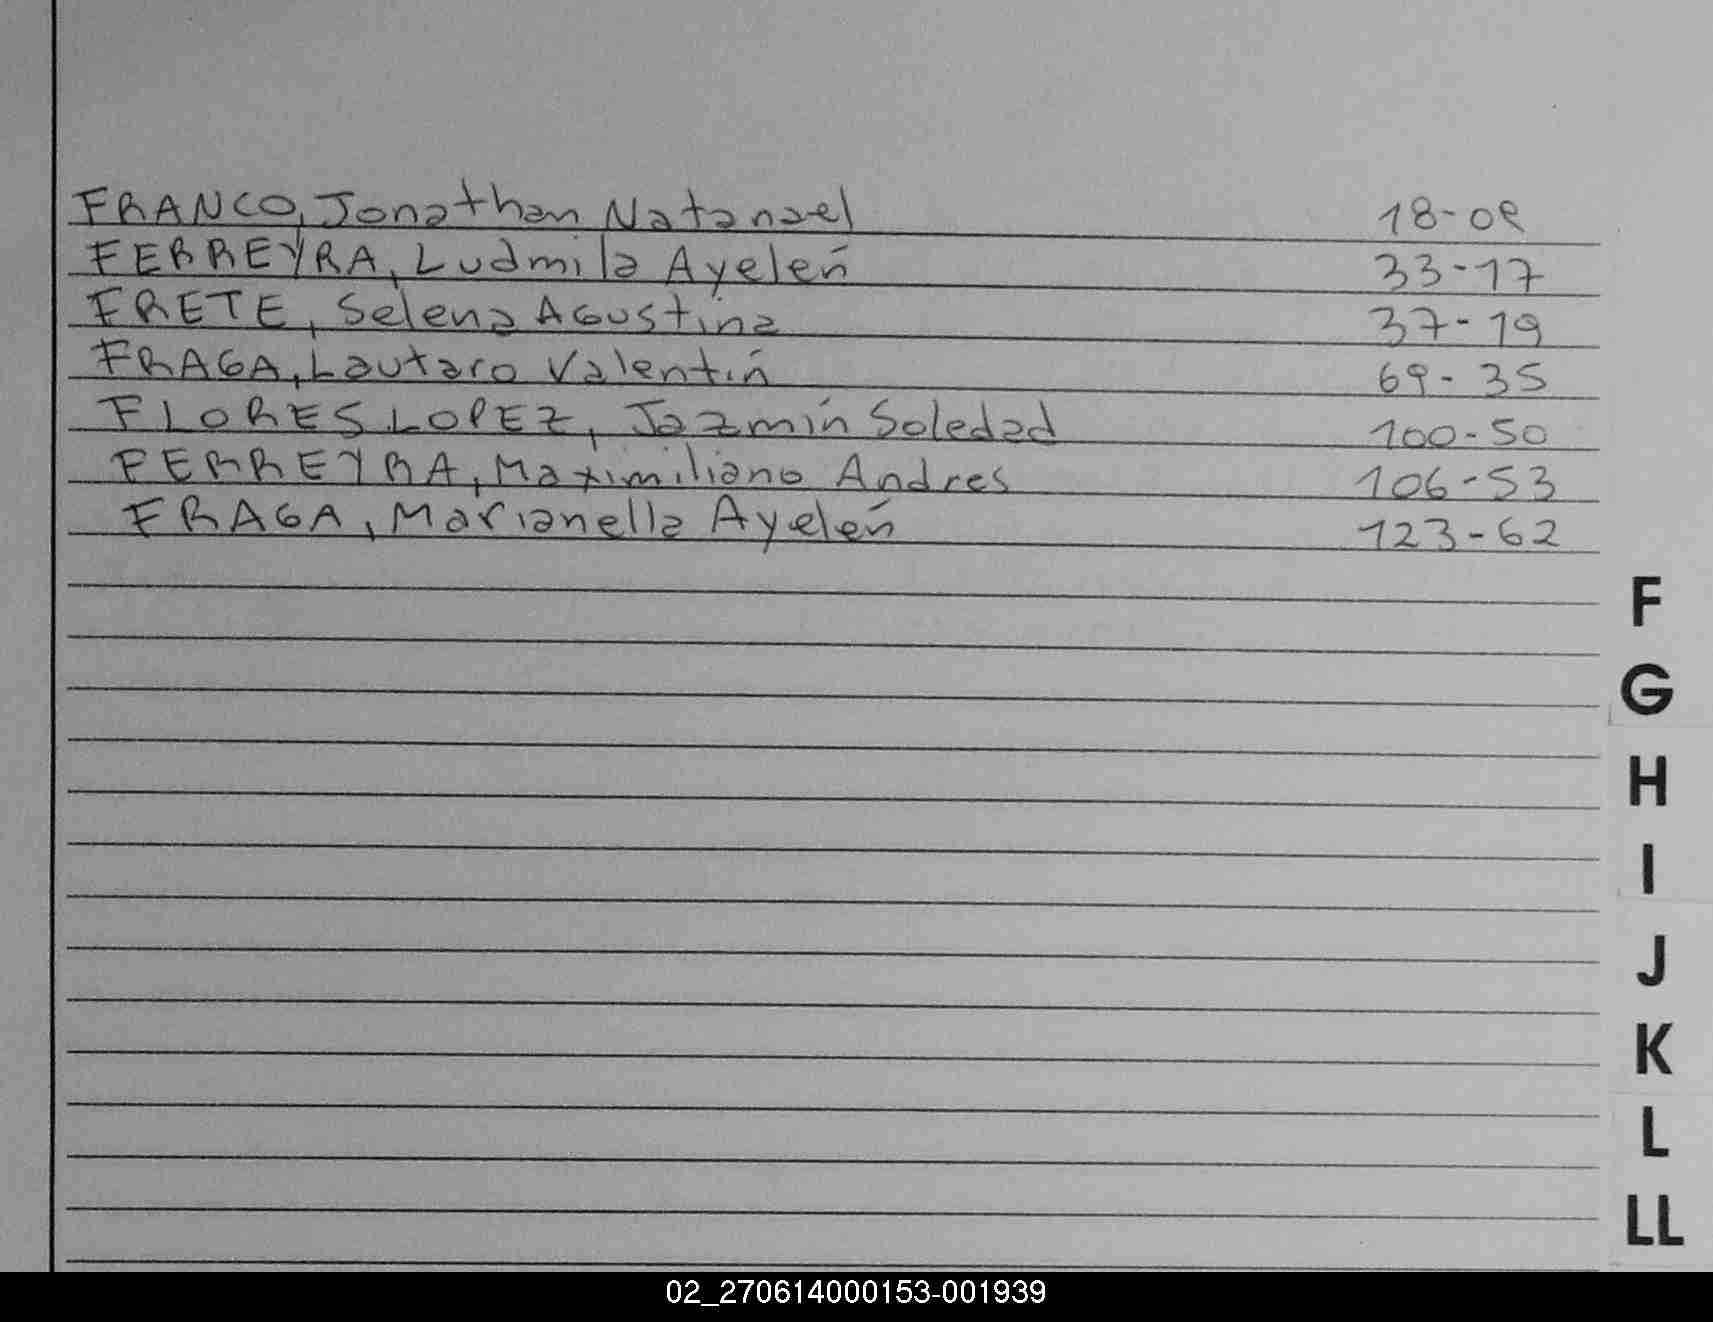 FRANCO, Jonathan Natanael 18-09
FERREYRA, Ludmila Ayelén 33-17
FRETE, Selena Agustina 37-19
FRAGA, Lautaro Valentín 69-35
FLORES LOPEZ, Jazmín Soledad 100-50
FERREYRA, Maximiliano Andres 106-53
FRAGA, Marianella Ayelén 123-62
F
G
H
I
J
K
L
LL
02_270614000153-001939